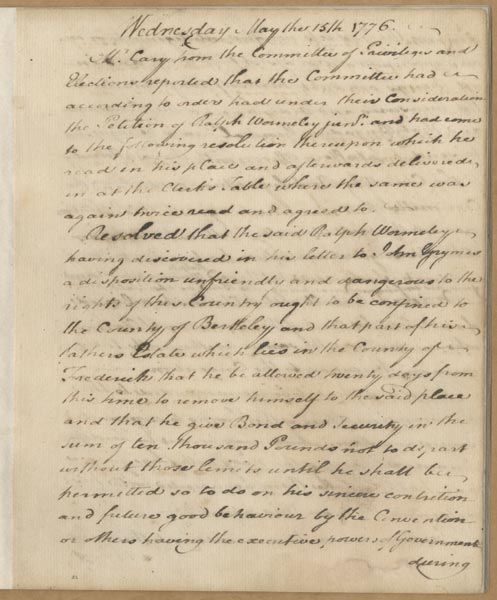 Wednesday May the 15th 1776.
Mr. Cary from the Committee of Privileges and
Elections reported that the Committee had
according to order had under their Consideration
the Petition of Ralph Wormeley junr. and had come
to the following resolution thereupon which he
read in his place and afterwards delivered
in at the Clerk's Table where the same was
again twice read and agreed to.
Resolved that the said Ralph Wormeley
having discovered in his letter to John Grymes
a disposition unfriendly and dangerous to the
rights of this Country ought to be confined to
the County of Berkeley and that part of his
fathers Estate which lies in the County of
Frederick that he be allowed twenty days from
this time to remove himself to the said place
and that he give Bond and Security in the
sum of ten thousand Pounds not to depart
without those limits until he shall be
permitted so to do on his sincere contrition
and future good behaviour by the Convention
or others having the executive powers of Government
during